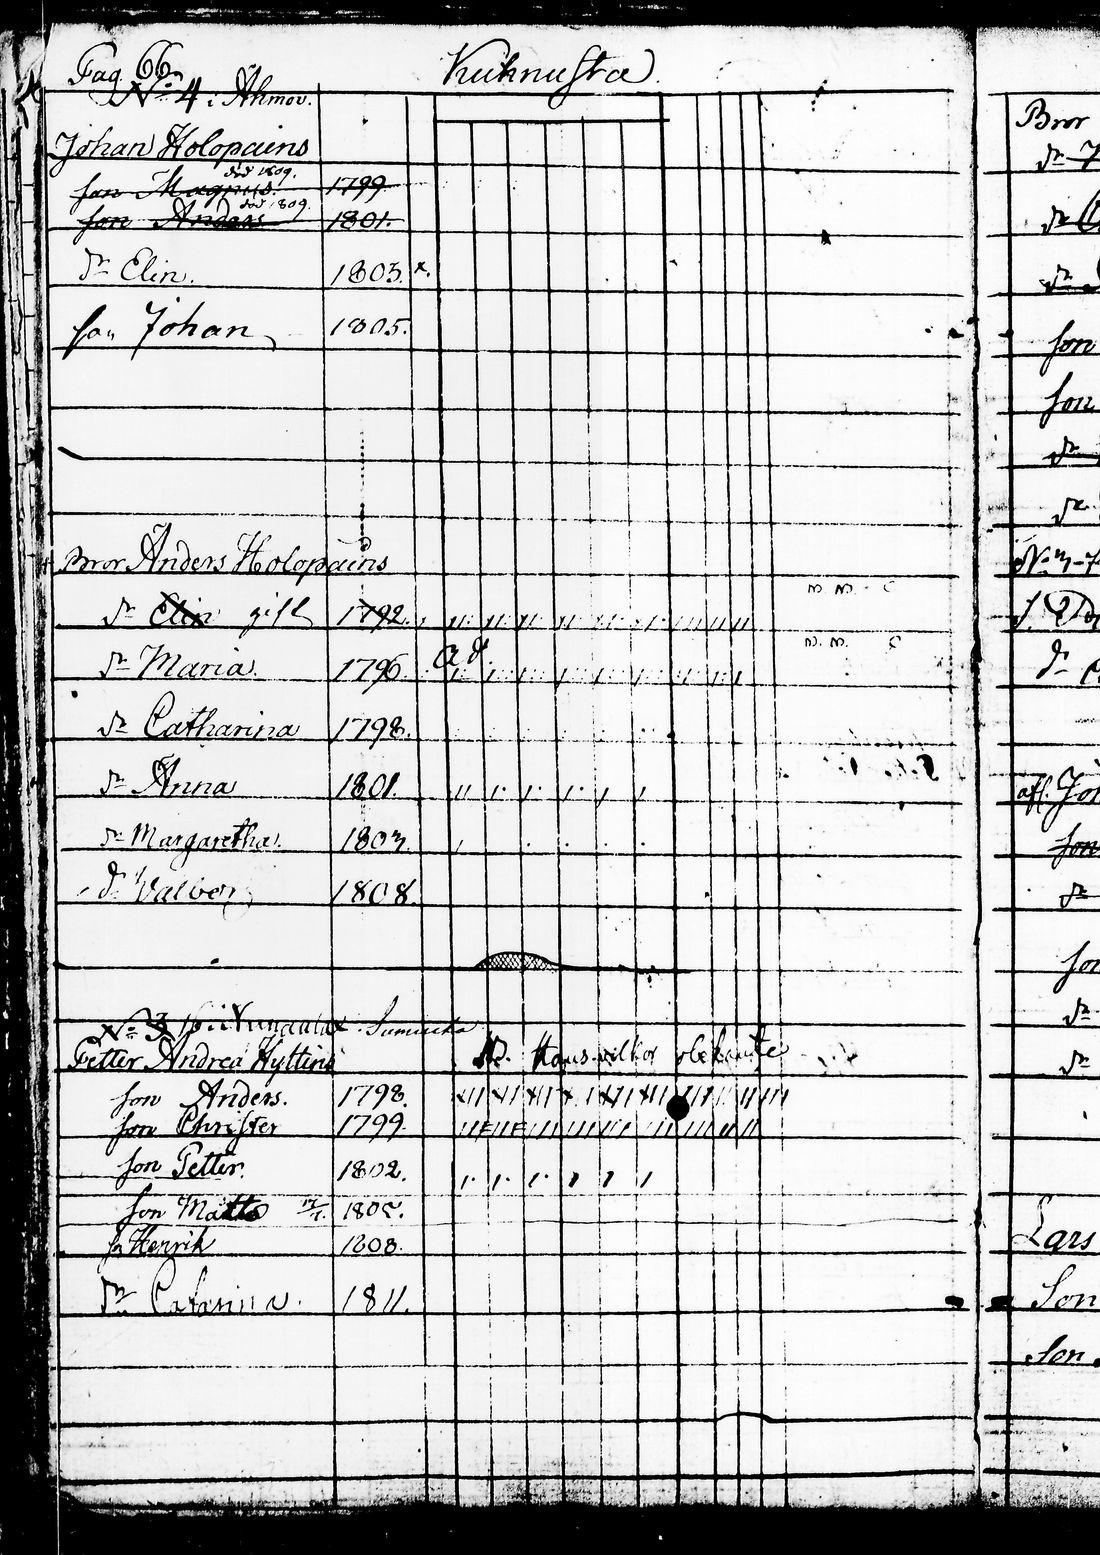 Pag. 66
Kuhnusta
No 4 i Ahmov.
Johan Holopains
son Magnus död 1809. 1799
son Anders död 1809. 1801.
Dr Elin. 1803 x.
son Johan 1805.
Bror Anders Holopains
Dr Elin gift 1792.
Dr Maria. 1796. a d.
Dr Catharina 1798.
Dr Anna 1801.
Dr Margaretha. 1803.
Dr Valbor 1808.
No 3
Petter Andrea Hyttins
son Anders. 1798.
son Christer 1799.
son Petter. 1802.
son Matts 1805.
sn Henrik 1808.
Dr Catarina. 1811.
Bror
Dr
Dr
Dr
son
son
Dr
Dr
Dr
son
Dr
Dr
Lars
Son
Son